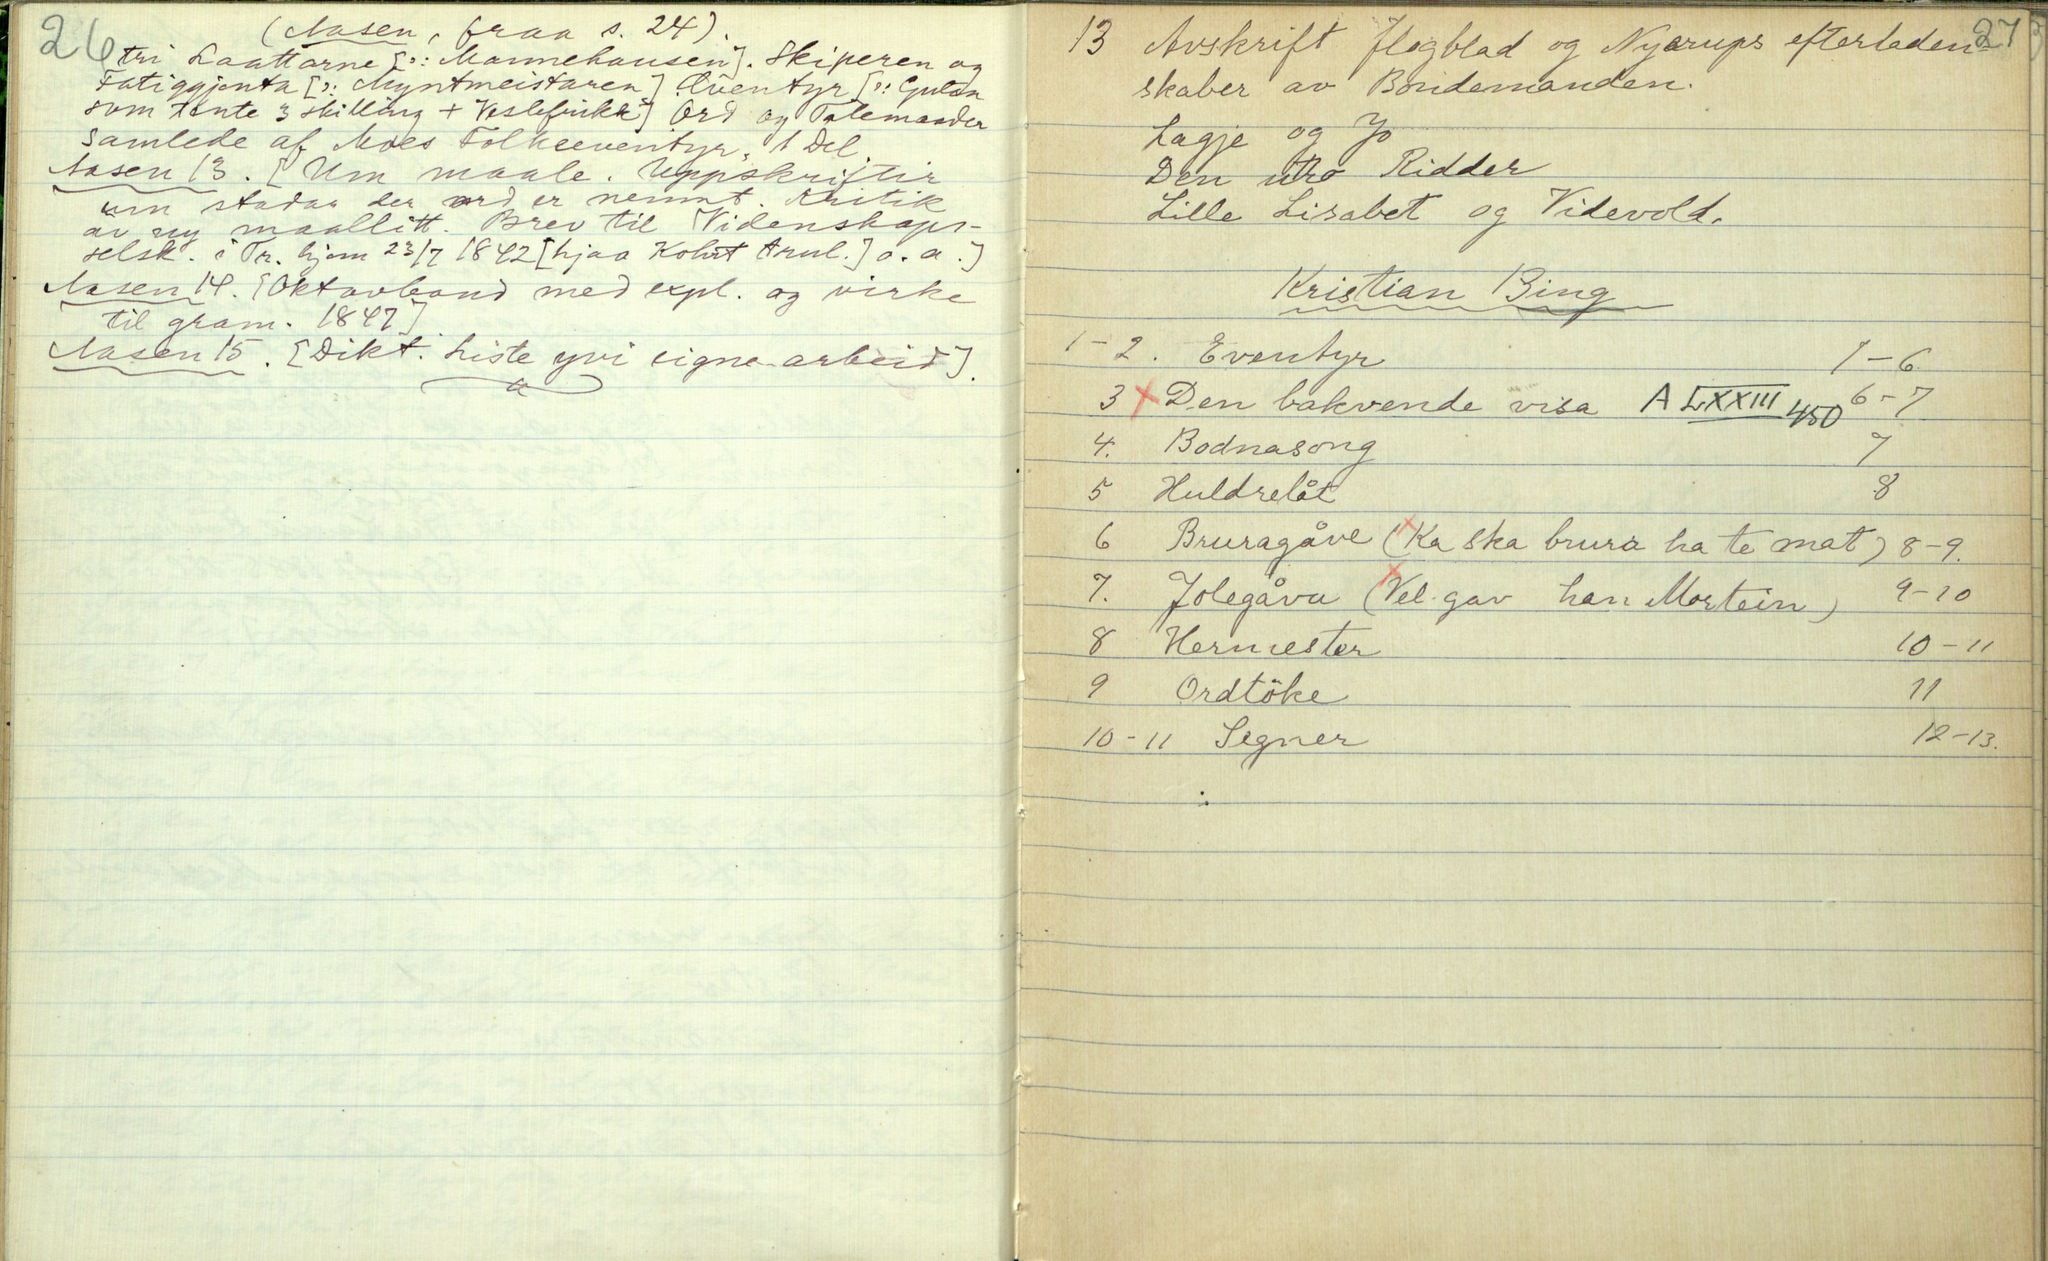 26
(Aasen, fraa s. 24).
tri Laattarne [ɔ: Mannehausen]. Skiperen og
Fatiggjenta [ɔ: Myntmeistaren] Æventyr [ɔ: Guten
som tente 3 skilling + Veslefrikk] Ord og Talemaader
samlede af Moes Folkeeventyr, 1 Del
Aasen 13. [Um maale. Uppskriftir
um stadar der ord er nemnt. Kritik
av ny maallitt. Brev til Videnskaps-
selsk. i Tr. hjem 23/7 1842 [hjaa Kohrt] o. a.]
Aasen 14. [Oktavband med expl. og virke
til gram. 1847]
Aasen 15. [Dikt. Liste yvi eigne arbeid].
27
13 Avskrift flogblad og Nyerups efterladen-
skaber av Bondemanden.
Lagje og Jo
Den utro Ridder
Lille Lisabet og Videvold.
Kristian Bing
1-2. Eventyr 1-6
3 x Den bakvende visa A LXXIII 450 6-7
4. Bodnasong 7
5 Huldrelåt 8
6 Bruragåve (x Ka ska brura ha te mat) 8-9.
7. Jolegåva (x Vel gav han Mortein) 9-10
8 Hermester 10-11
9 Ordtöke 11
10-11 Segner 12-13.